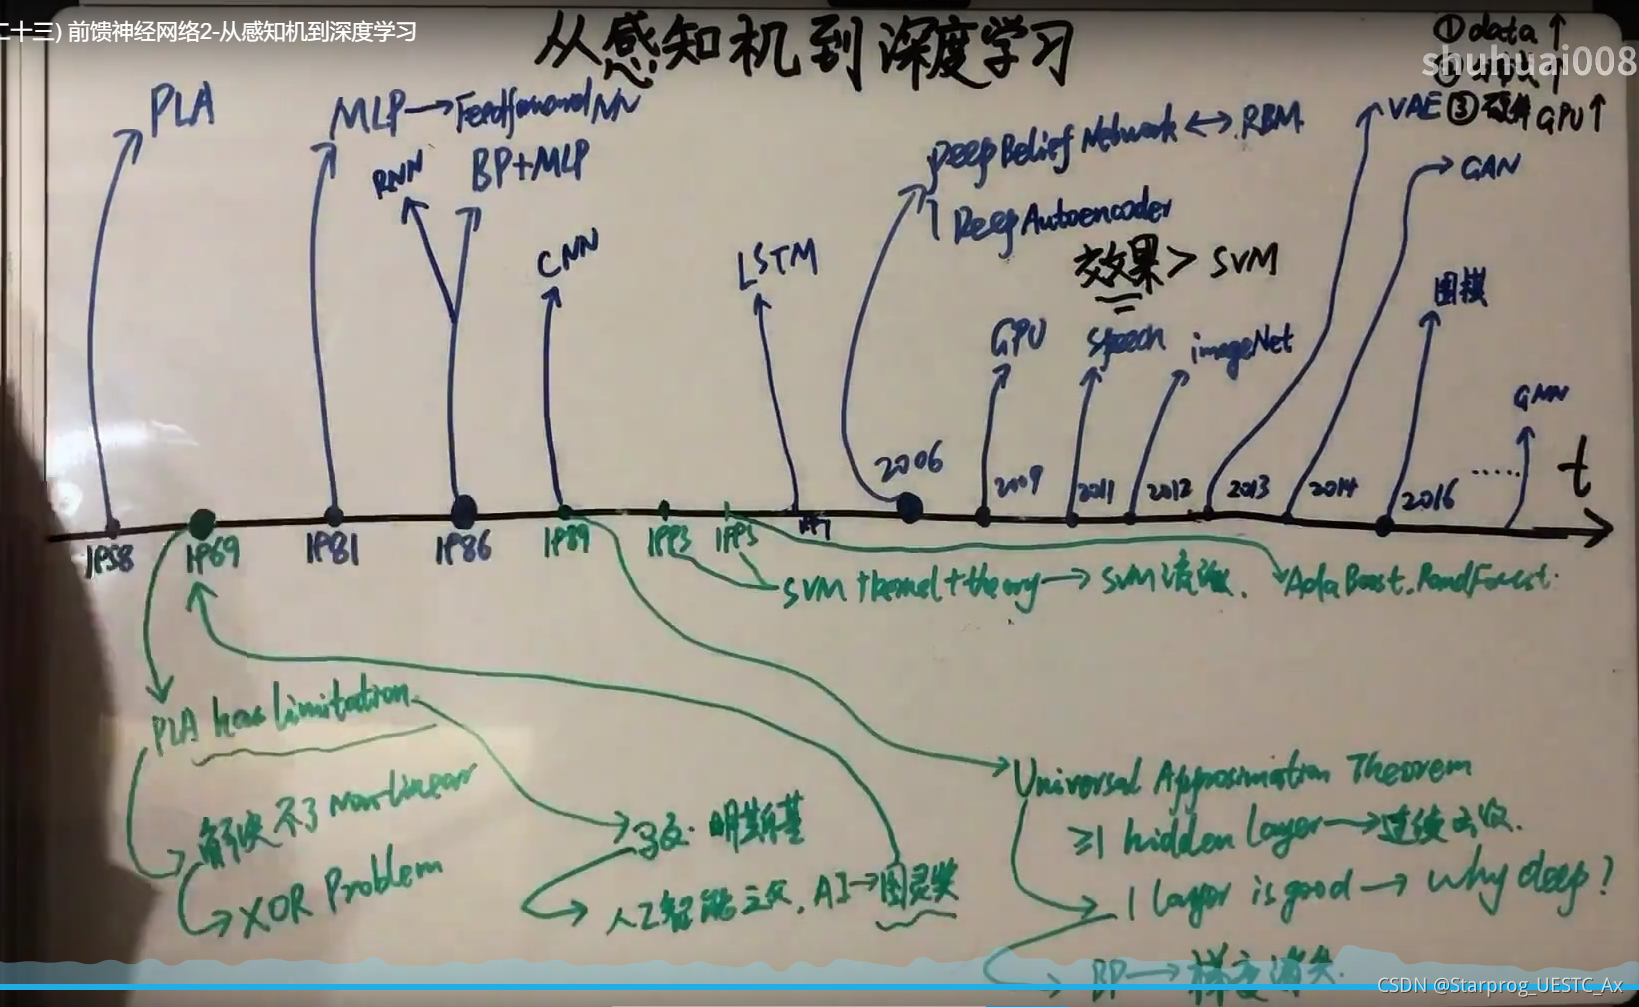 二十三) 前馈神经网络2-从感知机到深度学习
从感知机到深度学习
① data ↑
shuhuai008
③ 硬件 GPU ↑
PLA
MLP → Feedforward NN
RNN
BP+MLP
CNN
LSTM
Deep Belief Network ↔ RBM
Deep Autoencoder
效果 > SVM
GPU
speech
imageNet
VAE
GAN
围棋
GNN
t
1958
1969
1981
1986
1989
1993
1995
1997
2006
2009
2011
2012
2013
2014
2016
......
SVM + kernel + theory → SVM流派.
AdaBoost. RandForest.
PLA has limitation
解决不了 non-linear
XOR Problem
马文·明斯基
人工智能之父. AI → 图灵奖
Universal Approximation Theorem
≥1 hidden layer → 连续函数.
1 layer is good → why deep?
BP → 梯度消失.
CSDN @Starprog_UESTC_Ax